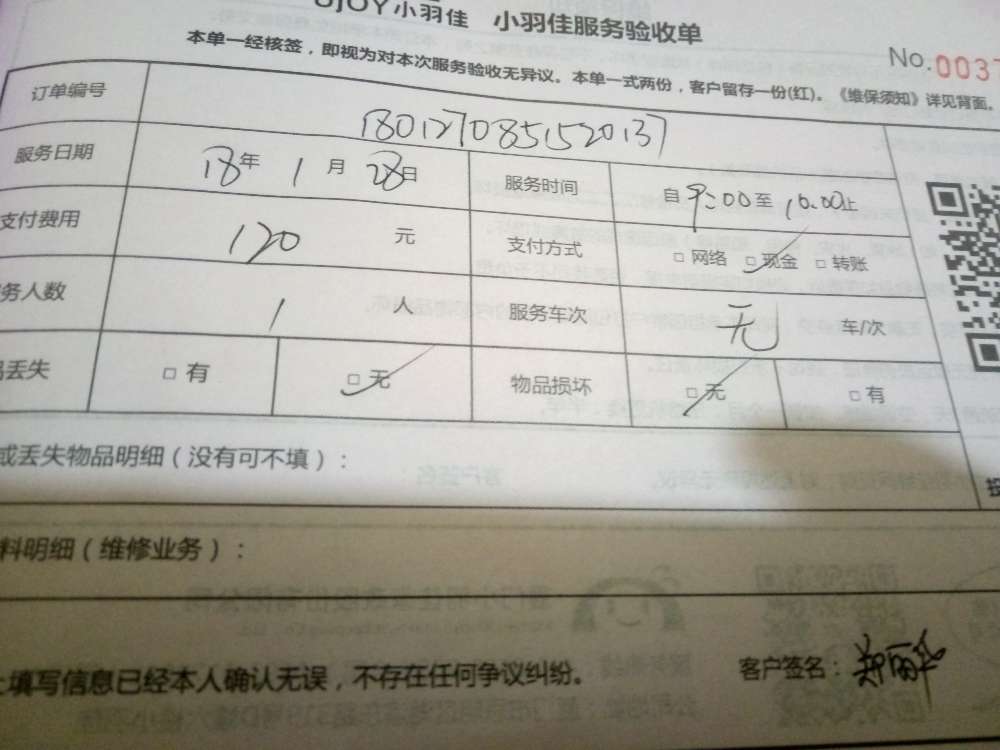 UJOY小羽佳 小羽佳服务验收单
No.0037
本单一经核签，即视为对本次服务验收无异议。本单一式两份，客户留存一份(红)。《维保须知》详见背面。
订单编号 1801270851520137
服务日期 18年 1月 28日 服务时间 自9:00至10:00止
支付费用 120 元 支付方式 □网络 ☑现金 □转账
务人数 1 人 服务车次 无 车/次
品丢失 □有 ☑无 物品损坏 ☑无 □有
或丢失物品明细（没有可不填）：
料明细（维修业务）：
上填写信息已经本人确认无误，不存在任何争议纠纷。 客户签名：郑丽华